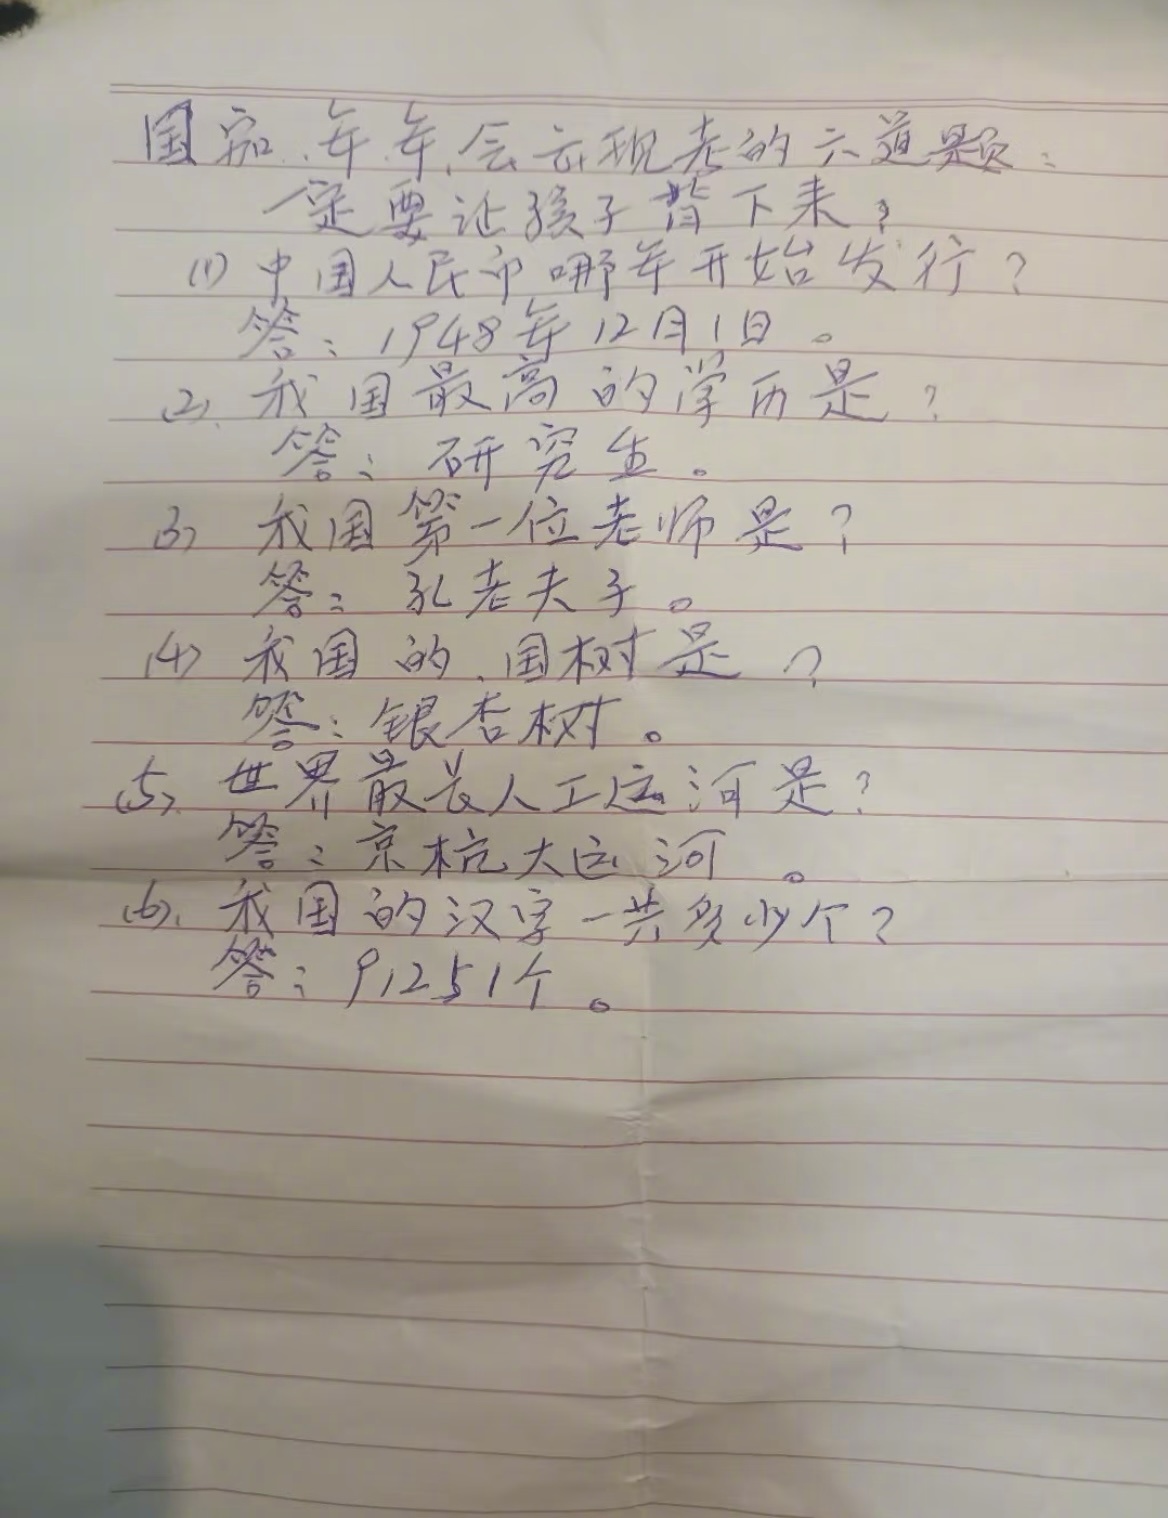 国家年年会出现考的六道题:
一定要让孩子背下来,
(1) 中国人民币哪年开始发行?
答:1948年12月1日。
(2) 我国最高的学历是?
答:研究生。
(3) 我国第一位老师是?
答:孔老夫子。
(4) 我国的、国树是?
答:银杏树。
(5) 世界最长人工运河是?
答:京杭大运河。
(6)、我国的汉字一共多少个?
答:91251个。